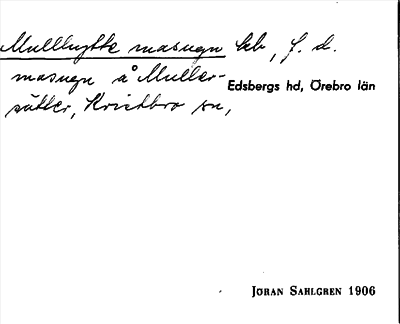 Mullhytte masugn lb, f. d.
masugn å Muller-
sätter, Kvistbro sn,
Edsbergs hd, Örebro län
JÖRAN SAHLGREN 1906